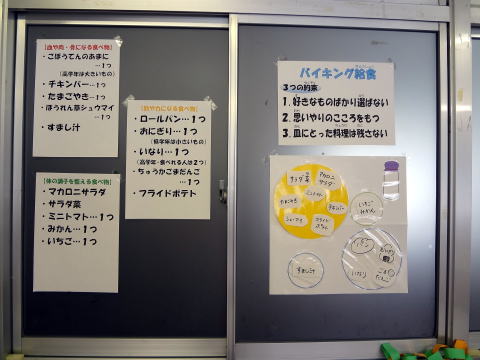 【血や肉・骨になる食べ物】
・ごぼうてんのあまに
…1つ
(高学年は大きいもの)
・チキンバー…1つ
・たまごやき…1つ
・ほうれん草シュウマイ
…1つ
・すまし汁
【体の調子を整える食べ物】
・マカロニサラダ
・サラダ菜
・ミニトマト…1つ
・みかん…1つ
・いちご…1つ
【熱や力になる食べ物】
・ロールパン…1つ
・おにぎり…1つ
(低学年は小さいもの)
・いなり…1つ
(高学年・食べれる人は2つ)
・ちゅうかごまだんご
…1つ
・フライドポテト
バイキング給食
3つの約束
1．好きなものばかり選ばない
2．思いやりのこころをもつ
3．皿にとった料理は残さない
サラダ菜
マカロニ
サラダ
ミニトマト
たまごやき
チキンバー
シューマイ
フライド
ポテト
いちご
みかん
すまし汁
パン
おにぎり
いなり
ごま
だんご